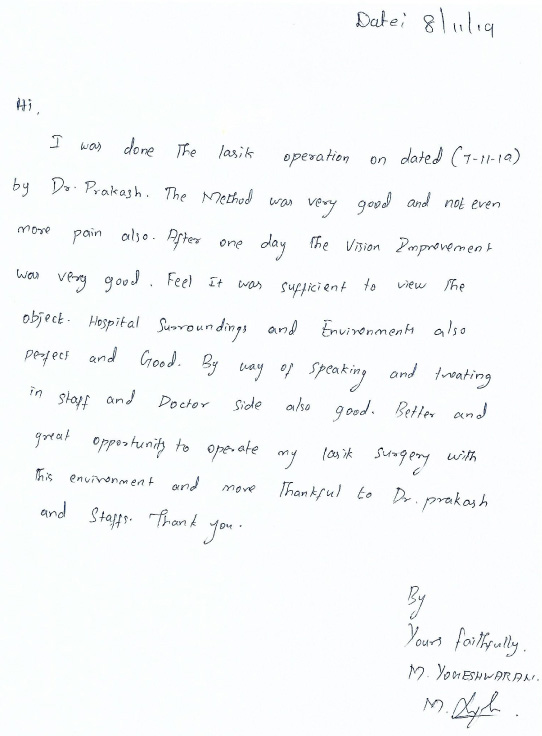 Date: 8/11/19
Hi,
I was done The lasik operation on dated (7-11-19)
by Dr. Prakash. The Method was very good and not even
more pain also. After one day The Vision Improvement
was very good. Feel It was sufficient to view The
object. Hospital Surroundings and Environments also
perfect and Good. By way of speaking and treating
in staff and Doctor side also good. Better and
great opportunity to operate my lasik surgery with
This environment and more Thankful to Dr. prakash
and Staffs. Thank you.
By
Yours faithfully.
M. YOMESHWARAN.
M.